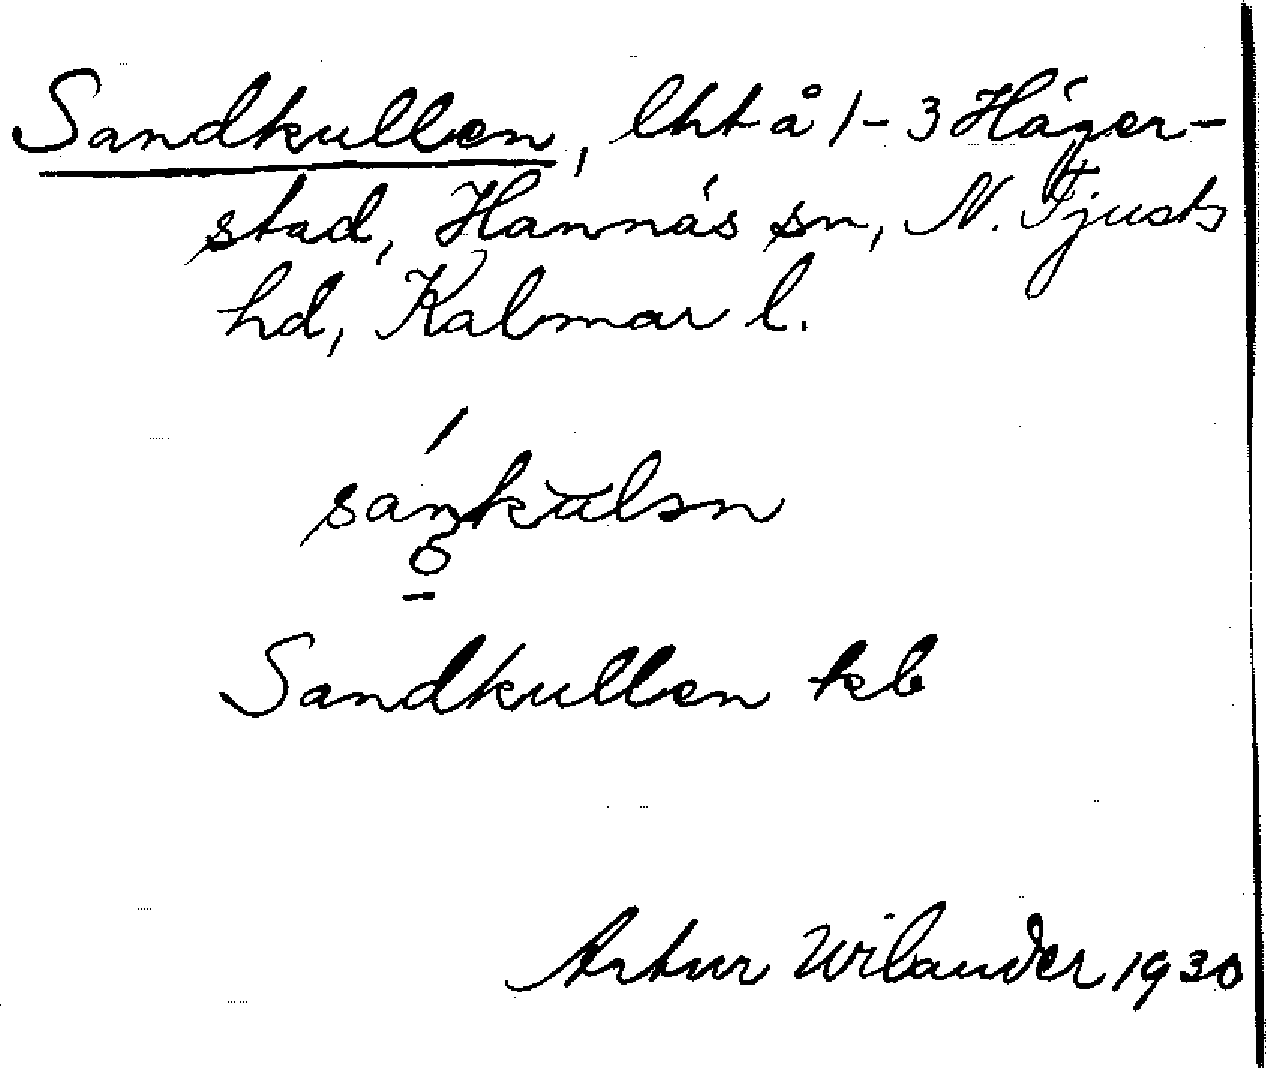 Sandkullen, lht å 1-3 Häger-
stad, Hannäs sn, N. Tjusts
hd, Kalmar l.
Sandkullen kb
Artur Wilander 1930